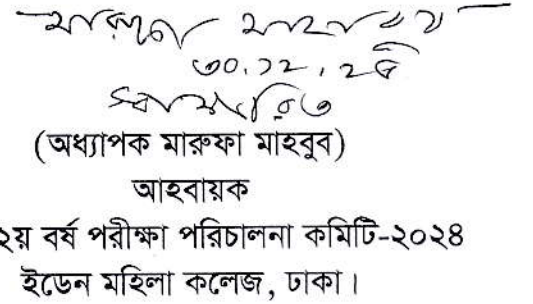 মারুফা মাহবুব
৩০.১২.২৪
স্বাক্ষরিত
(অধ্যাপক মারুফা মাহবুব)
আহবায়ক
২য় বর্ষ পরীক্ষা পরিচালনা কমিটি-২০২৪
ইডেন মহিলা কলেজ, ঢাকা।